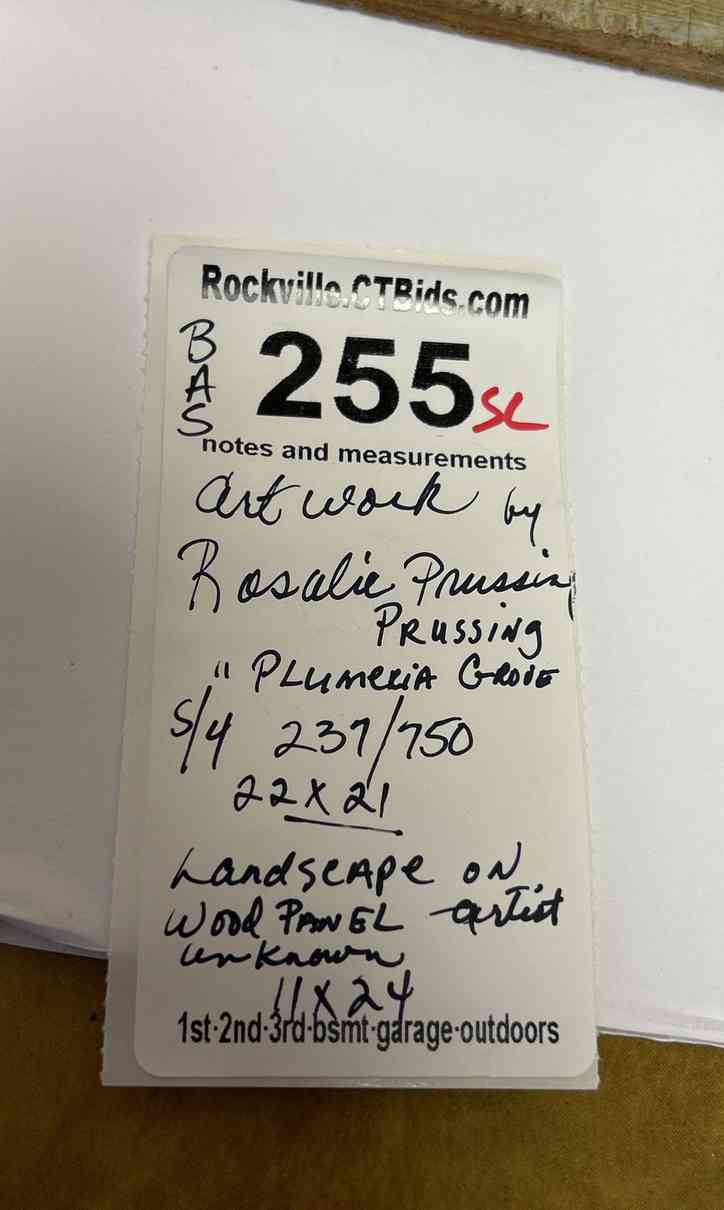 Rockville.CTBids.com
BAS
255 SL
notes and measurements
Artwork by
Rosalie Prussing
PRUSSING
" PLUMERIA GROVE
S/4 237/750
22 x 21
Landscape on
Wood Panel artist
unknown
11 x 24
1st·2nd·3rd·bsmt·garage·outdoors